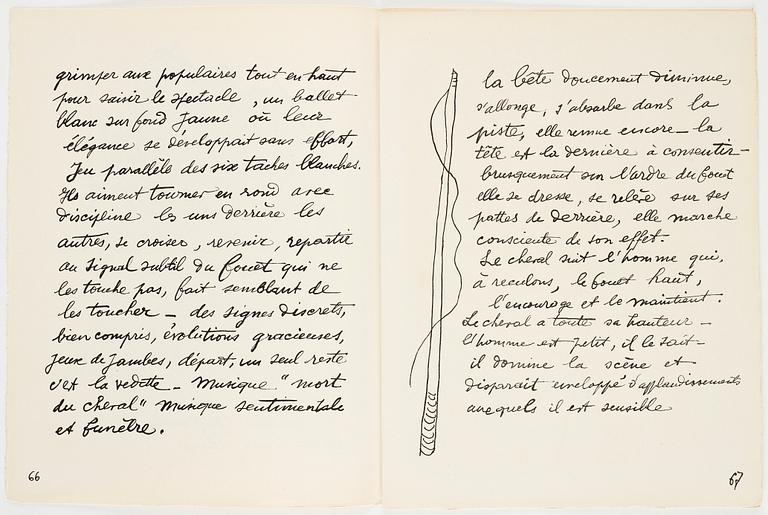 grimper aux populaires tout en haut
pour saisir le spectacle, un ballet
blanc sur fond jaune où leur
élégance se développait sans effort,
Jeu parallèle des six taches blanches.
Ils aiment tourner en rond avec
discipline les uns derrière les
autres, se croiser, revenir, repartir
au signal subtil du fouet qui ne
les touche pas, fait semblant de
les toucher – des signes discrets,
bien compris, évolutions gracieuses,
jeux de jambes, départ, un seul reste
c'est la vedette – Musique "mort
du cheval" Musique sentimentale
et funèbre.
66
la bête doucement diminue,
s'allonge, s'absorbe dans la
piste, elle remue encore – la
tête est la dernière à consentir –
brusquement sur l'ordre du fouet
elle se dresse, se relève sur ses
pattes de derrière, elle marche
consciente de son effet.
Le cheval suit l'homme qui,
à reculons, le fouet haut,
l'encourage et le maintient.
Le cheval a toute sa hauteur –
l'homme est petit, il le sait –
il domine la scène et
disparait enveloppé d'applaudissements
auxquels il est sensible
67